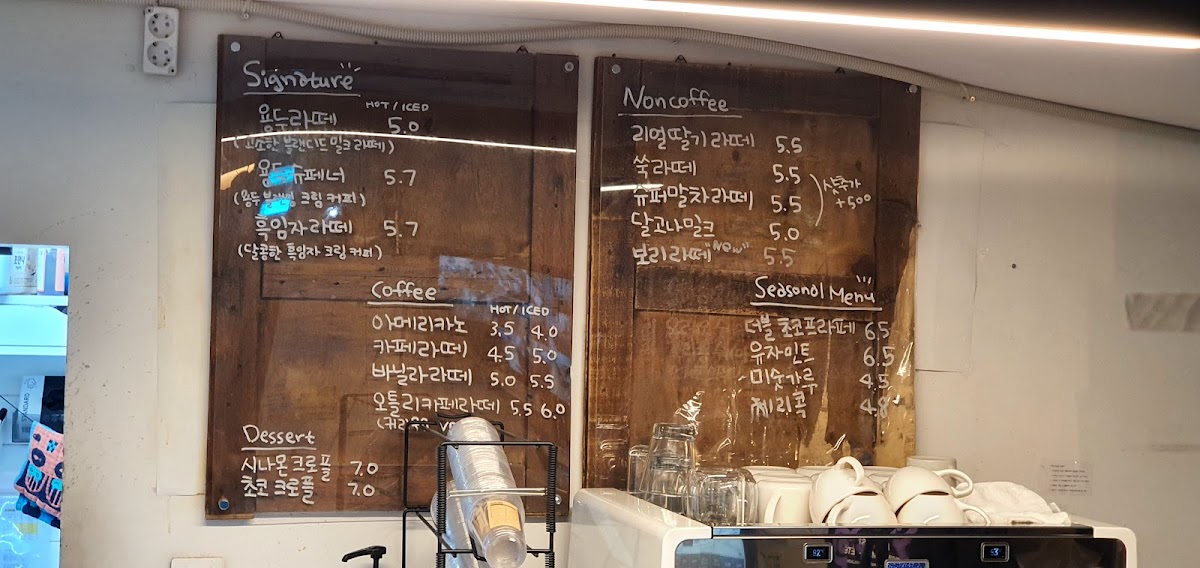 Signature
HOT / ICED
용두라떼 5.0
(고소한 블랜디드 밀크라떼)
용두슈페너 5.7
(용두블랜딩 크림 커피)
흑임자라떼 5.7
(달콤한 흑임자 크림 커피)
Coffee
HOT / ICED
아메리카노 3.5 4.0
카페라떼 4.5 5.0
바닐라라떼 5.0 5.5
오틀리카페라떼 5.5 6.0
Dessert
시나몬크로플 7.0
초코크로플 7.0
Noncoffee
리얼딸기라떼 5.5
쑥라떼 5.5
슈퍼말차라떼 5.5
샷추가
+500
달고나밀크 5.0
보리라떼 "New" 5.5
Seasonal Menu
더블초코프라페 6.5
유자민트 6.5
미숫가루 4.5
체리콕 4.8
92°
93°